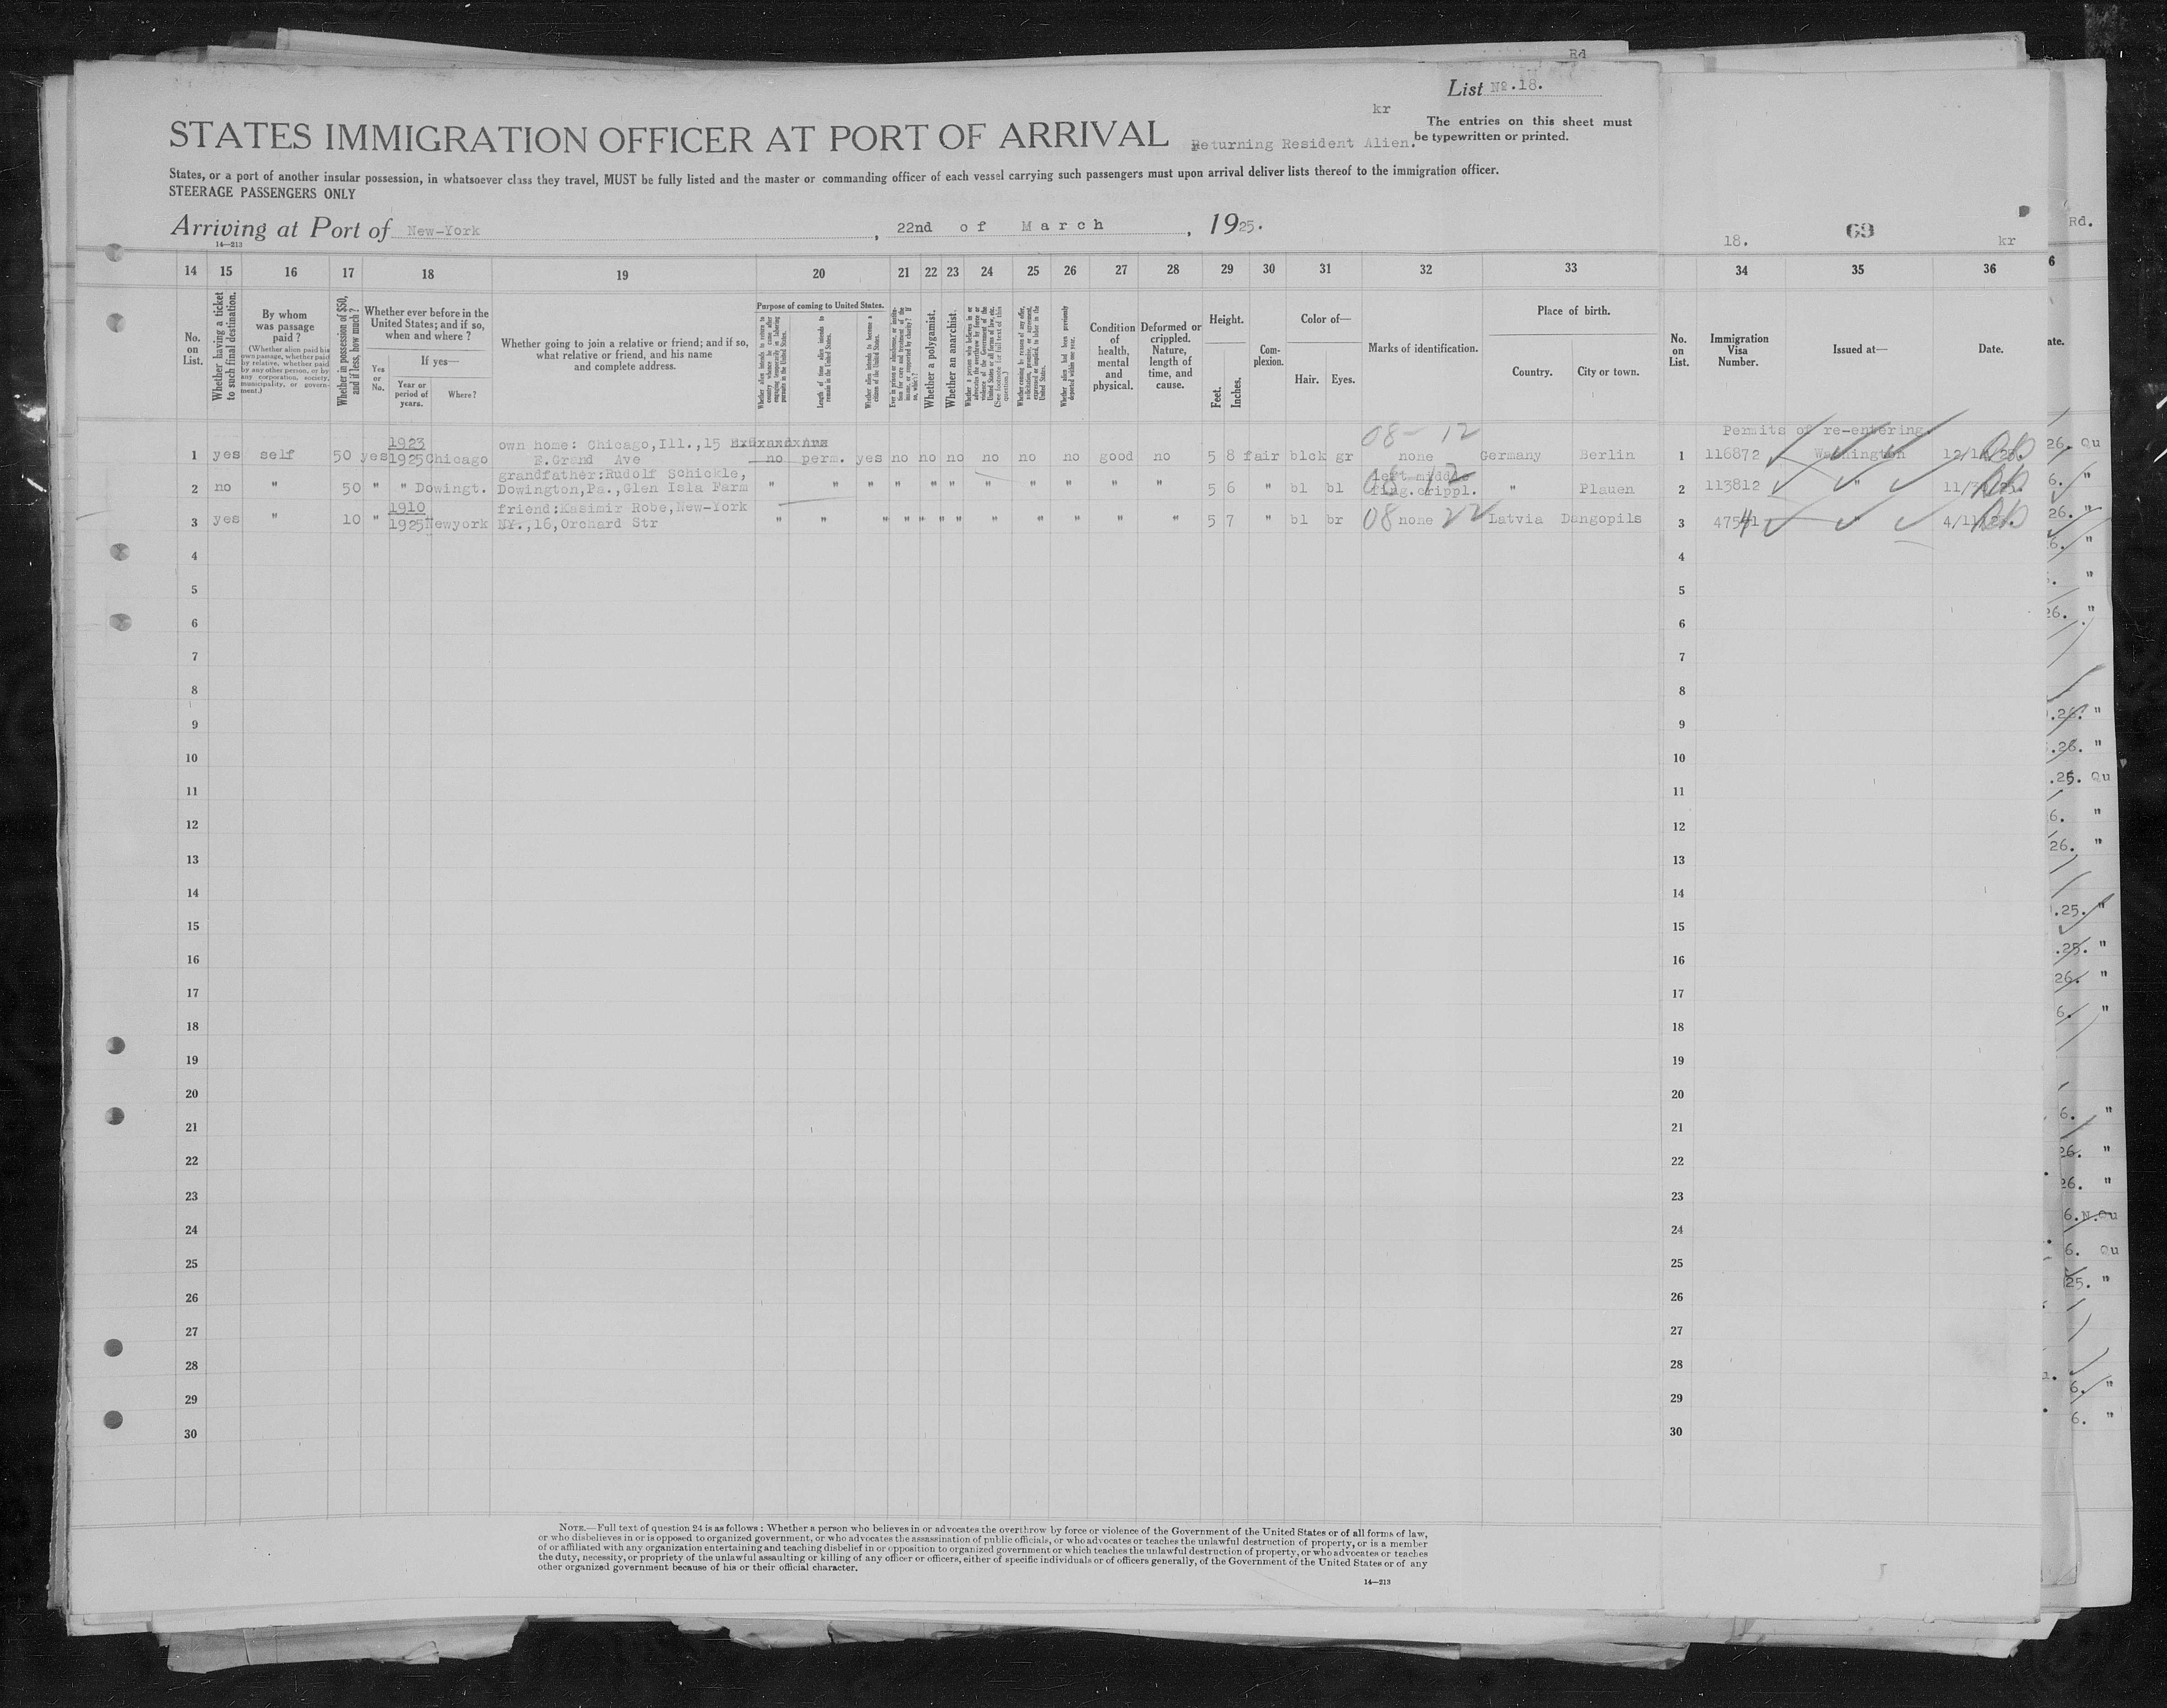 Rd
List No.18.
kr
The entries on this sheet must
be typewritten or printed.
STATES IMMIGRATION OFFICER AT PORT OF ARRIVAL Returning Resident Alien.
States, or a port of another insular possession, in whatsoever class they travel, MUST be fully listed and the master or commanding officer of each vessel carrying such passengers must upon arrival deliver lists thereof to the immigration officer.
STEERAGE PASSENGERS ONLY
Arriving at Port of New-York, 22nd of March, 1925.
14—213
18. 69 kr Rd.
14 15 16 17 18 19 20 21 22 23 24 25 26 27 28 29 30 31 32 33 34 35 36 6
No. on List.
Whether having a ticket to such final destination.
By whom was passage paid?
(Whether alien paid his own passage, whether paid by relative, whether paid by any other person, or by any corporation, society, municipality, or government.)
Whether in possession of $50, and if less, how much?
Whether ever before in the United States; and if so, when and where?
Yes or No.
If yes—
Year or period of years.
Where?
Whether going to join a relative or friend; and if so,
what relative or friend, and his name
and complete address.
Purpose of coming to United States.
Whether alien intends to return to country whence he came after engaging temporarily in laboring pursuits in the United States.
Length of time alien intends to remain in the United States.
Whether alien intends to become a citizen of the United States.
Ever in prison or almshouse, or institution for care and treatment of the insane, or supported by charity? If so, which?
Whether a polygamist.
Whether an anarchist.
Whether a person who believes in or advocates the overthrow by force or violence of the Government of the United States or all forms of law, etc. (See footnote for full text of this question.)
Whether coming by reason of any offer, solicitation, promise, or agreement, expressed or implied, to labor in the United States.
Whether alien had been previously deported within one year.
Condition of health, mental and physical.
Deformed or crippled. Nature, length of time, and cause.
Height.
Feet. Inches.
Complexion.
Color of—
Hair. Eyes.
Marks of identification.
Place of birth.
Country. City or town.
No. on List.
Immigration Visa Number.
Issued at—
Date.
ate.
Permits of re-entering.
1923 own home: Chicago,Ill.,15 08-12
1 yes self 50 yes 1925 Chicago E.Grand Ave no perm. yes no no no no no no good no 5 8 fair blck gr none Germany Berlin 1 116872 Washington
grandfather:Rudolf Schickle, left middle
2 no " 50 " " Dowingt. Dowington,Pa.,Glen Isla Farm " " " " " " " " " " " 5 6 " bl bl fing.crippl. " Plauen 2 113812 "
1910 friend:Kasimir Robe,New-York
3 yes " 10 " 1925 Newyork NY.,16,Orchard Str " " " " " " " " " " " 5 7 " bl br 08 none 22 Latvia Dangopils 3 "
4 4
5 5
6 6
7 7
8 8
9 9
10 10
11 11
12 12
13 13
14 14
15 15
16 16
17 17
18 18
19 19
20 20
21 21
22 22
23 23
24 24
25 25
26 26
27 27
28 28
29 29
30 30
NOTE.—Full text of question 24 is as follows: Whether a person who believes in or advocates the overthrow by force or violence of the Government of the United States or of all forms of law,
or who disbelieves in or is opposed to organized government, or who advocates the assassination of public officials, or who advocates or teaches the unlawful destruction of property, or is a member
of or affiliated with any organization entertaining and teaching disbelief in or opposition to organized government or which teaches the unlawful destruction of property, or who advocates or teaches
the duty, necessity, or propriety of the unlawful assaulting or killing of any officer or officers, either of specific individuals or of officers generally, of the Government of the United States or of any
other organized government because of his or their official character.
14—213